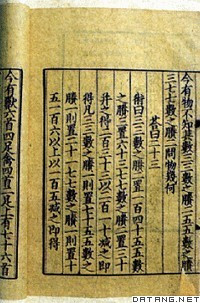 今有物不知其數三三數之賸二五五數之賸
三七七數之賸二問物幾何
答曰二十三
術曰三三數之賸二置一百四十五五數
之賸三置六十三七七數之賸二置三十
并之得二百三十三以二百一十減之即
得凡三三數之賸一則置七十五五數之
賸一則置二十一七七數之賸一則置十
五一百六以上以一百五減之即得
今有獸六首四足禽四首二足上有七十六首
DATANG.NET